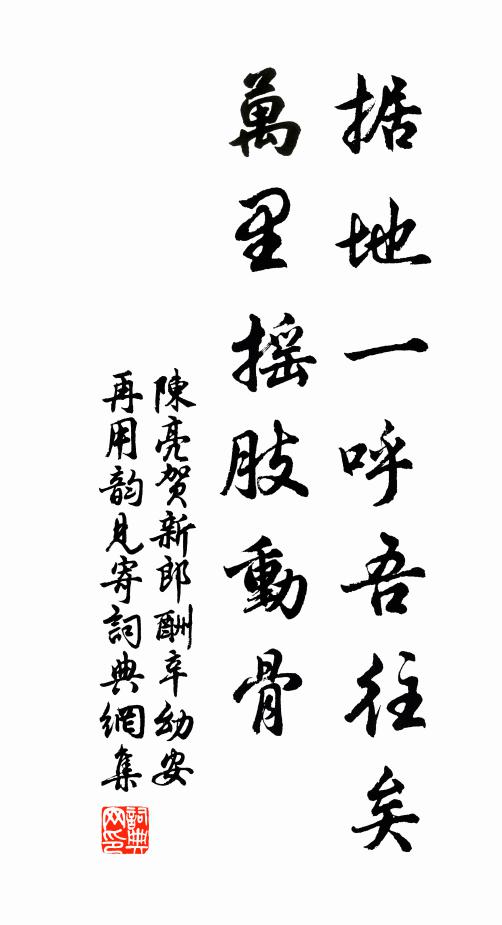 据地一呼吾往矣
萬里摇肢動骨
陳亮贺新郎酬辛幼安
再用韵见寄詞典網集
詞典網印